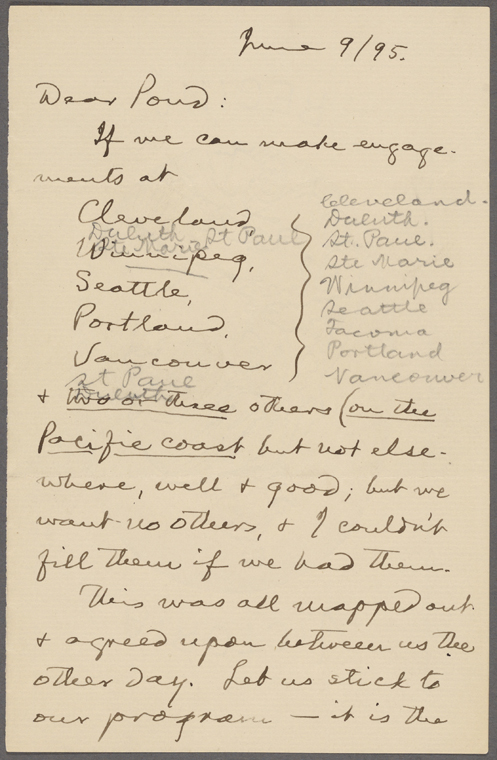 June 9/95.
Dear Pond:
If we can make engage-
ments at
Cleveland
Duluth St Paul
Ste Marie
Winnipeg,
Seattle,
Portland,
Vancouver
St Paul
Duluth
Cleveland.
Duluth.
St. Paul.
Ste Marie
Winnipeg
Seattle
Tacoma
Portland
Vancouver
& two or three others (on the
Pacific coast but not else-
where, well & good; but we
want no others, & I couldn't
fill them if we had them.
This was all mapped out
& agreed upon between us the
other day. Let us stick to
our program — it is the